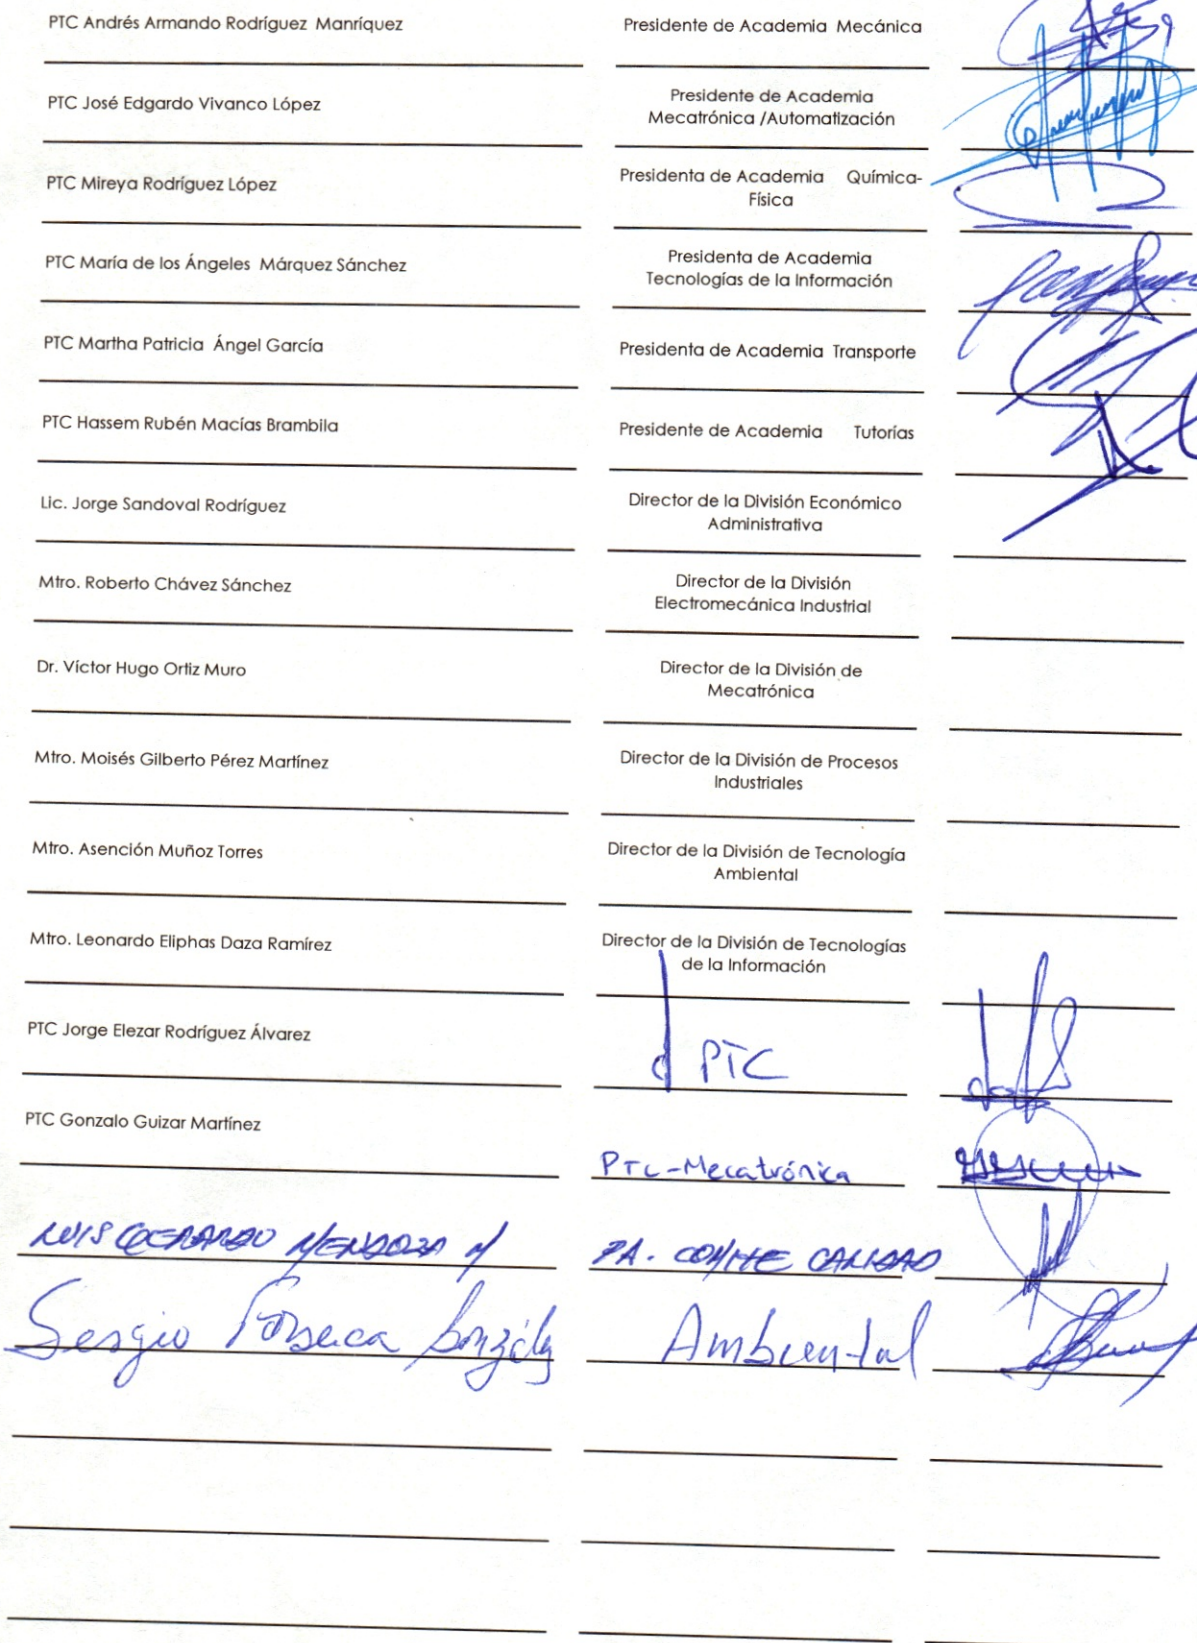 PTC Andrés Armando Rodríguez Manríquez
Presidente de Academia Mecánica
PTC José Edgardo Vivanco López
Presidente de Academia
Mecatrónica /Automatización
PTC Mireya Rodríguez López
Presidenta de Academia Química-
Física
PTC María de los Ángeles Márquez Sánchez
Presidenta de Academia
Tecnologías de la Información
PTC Martha Patricia Ángel García
Presidenta de Academia Transporte
PTC Hassem Rubén Macías Brambila
Presidente de Academia Tutorías
Lic. Jorge Sandoval Rodríguez
Director de la División Económico
Administrativa
Mtro. Roberto Chávez Sánchez
Director de la División
Electromecánica Industrial
Dr. Víctor Hugo Ortiz Muro
Director de la División de
Mecatrónica
Mtro. Moisés Gilberto Pérez Martínez
Director de la División de Procesos
Industriales
Mtro. Asención Muñoz Torres
Director de la División de Tecnología
Ambiental
Mtro. Leonardo Eliphas Daza Ramírez
Director de la División de Tecnologías
de la Información
PTC Jorge Elezar Rodríguez Álvarez
PTC
PTC Gonzalo Guizar Martínez
PTC-Mecatrónica
LUIS GERARDO MENDOZA M
PA. COMITE CALIDAD
Sergio Fonseca González
Ambiental